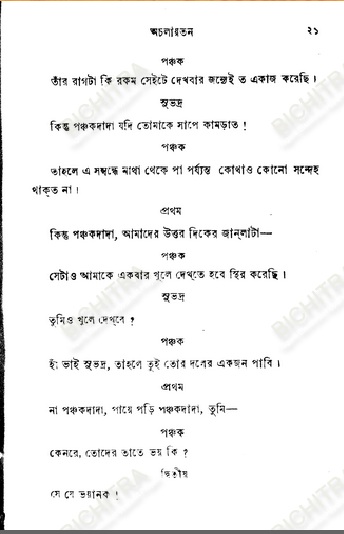 অচলায়তন ২১
পঞ্চক
তাঁর রাগটা কি রকম সেইটে দেখবার জন্যেই ত একাজ করেছি।
সুভদ্র
কিন্তু পঞ্চকদাদা যদি তোমাকে সাপে কামড়াত !
পঞ্চক
তাহলে এ সম্বন্ধে মাথা থেকে পা পর্য্যন্ত কোথাও কোনো সন্দেহ
থাক্‌ত না।
প্রথম
কিন্তু পঞ্চকদাদা, আমাদের উত্তর দিকের জান্‌লাটা—
পঞ্চক
সেটাও আমাকে একবার খুলে দেখ্‌তে হবে স্থির করেছি।
সুভদ্র
তুমিও খুলে দেখ্‌বে ?
পঞ্চক
হাঁ ভাই সুভদ্র, তাহলে তুই তোর দলের একজন পাবি।
প্রথম
না পঞ্চকদাদা, পায়ে পড়ি পঞ্চকদাদা, তুমি—
পঞ্চক
কেনরে, তোদের তাতে ভয় কি ?
দ্বিতীয়
সে যে ভয়ানক !
BICHITRA